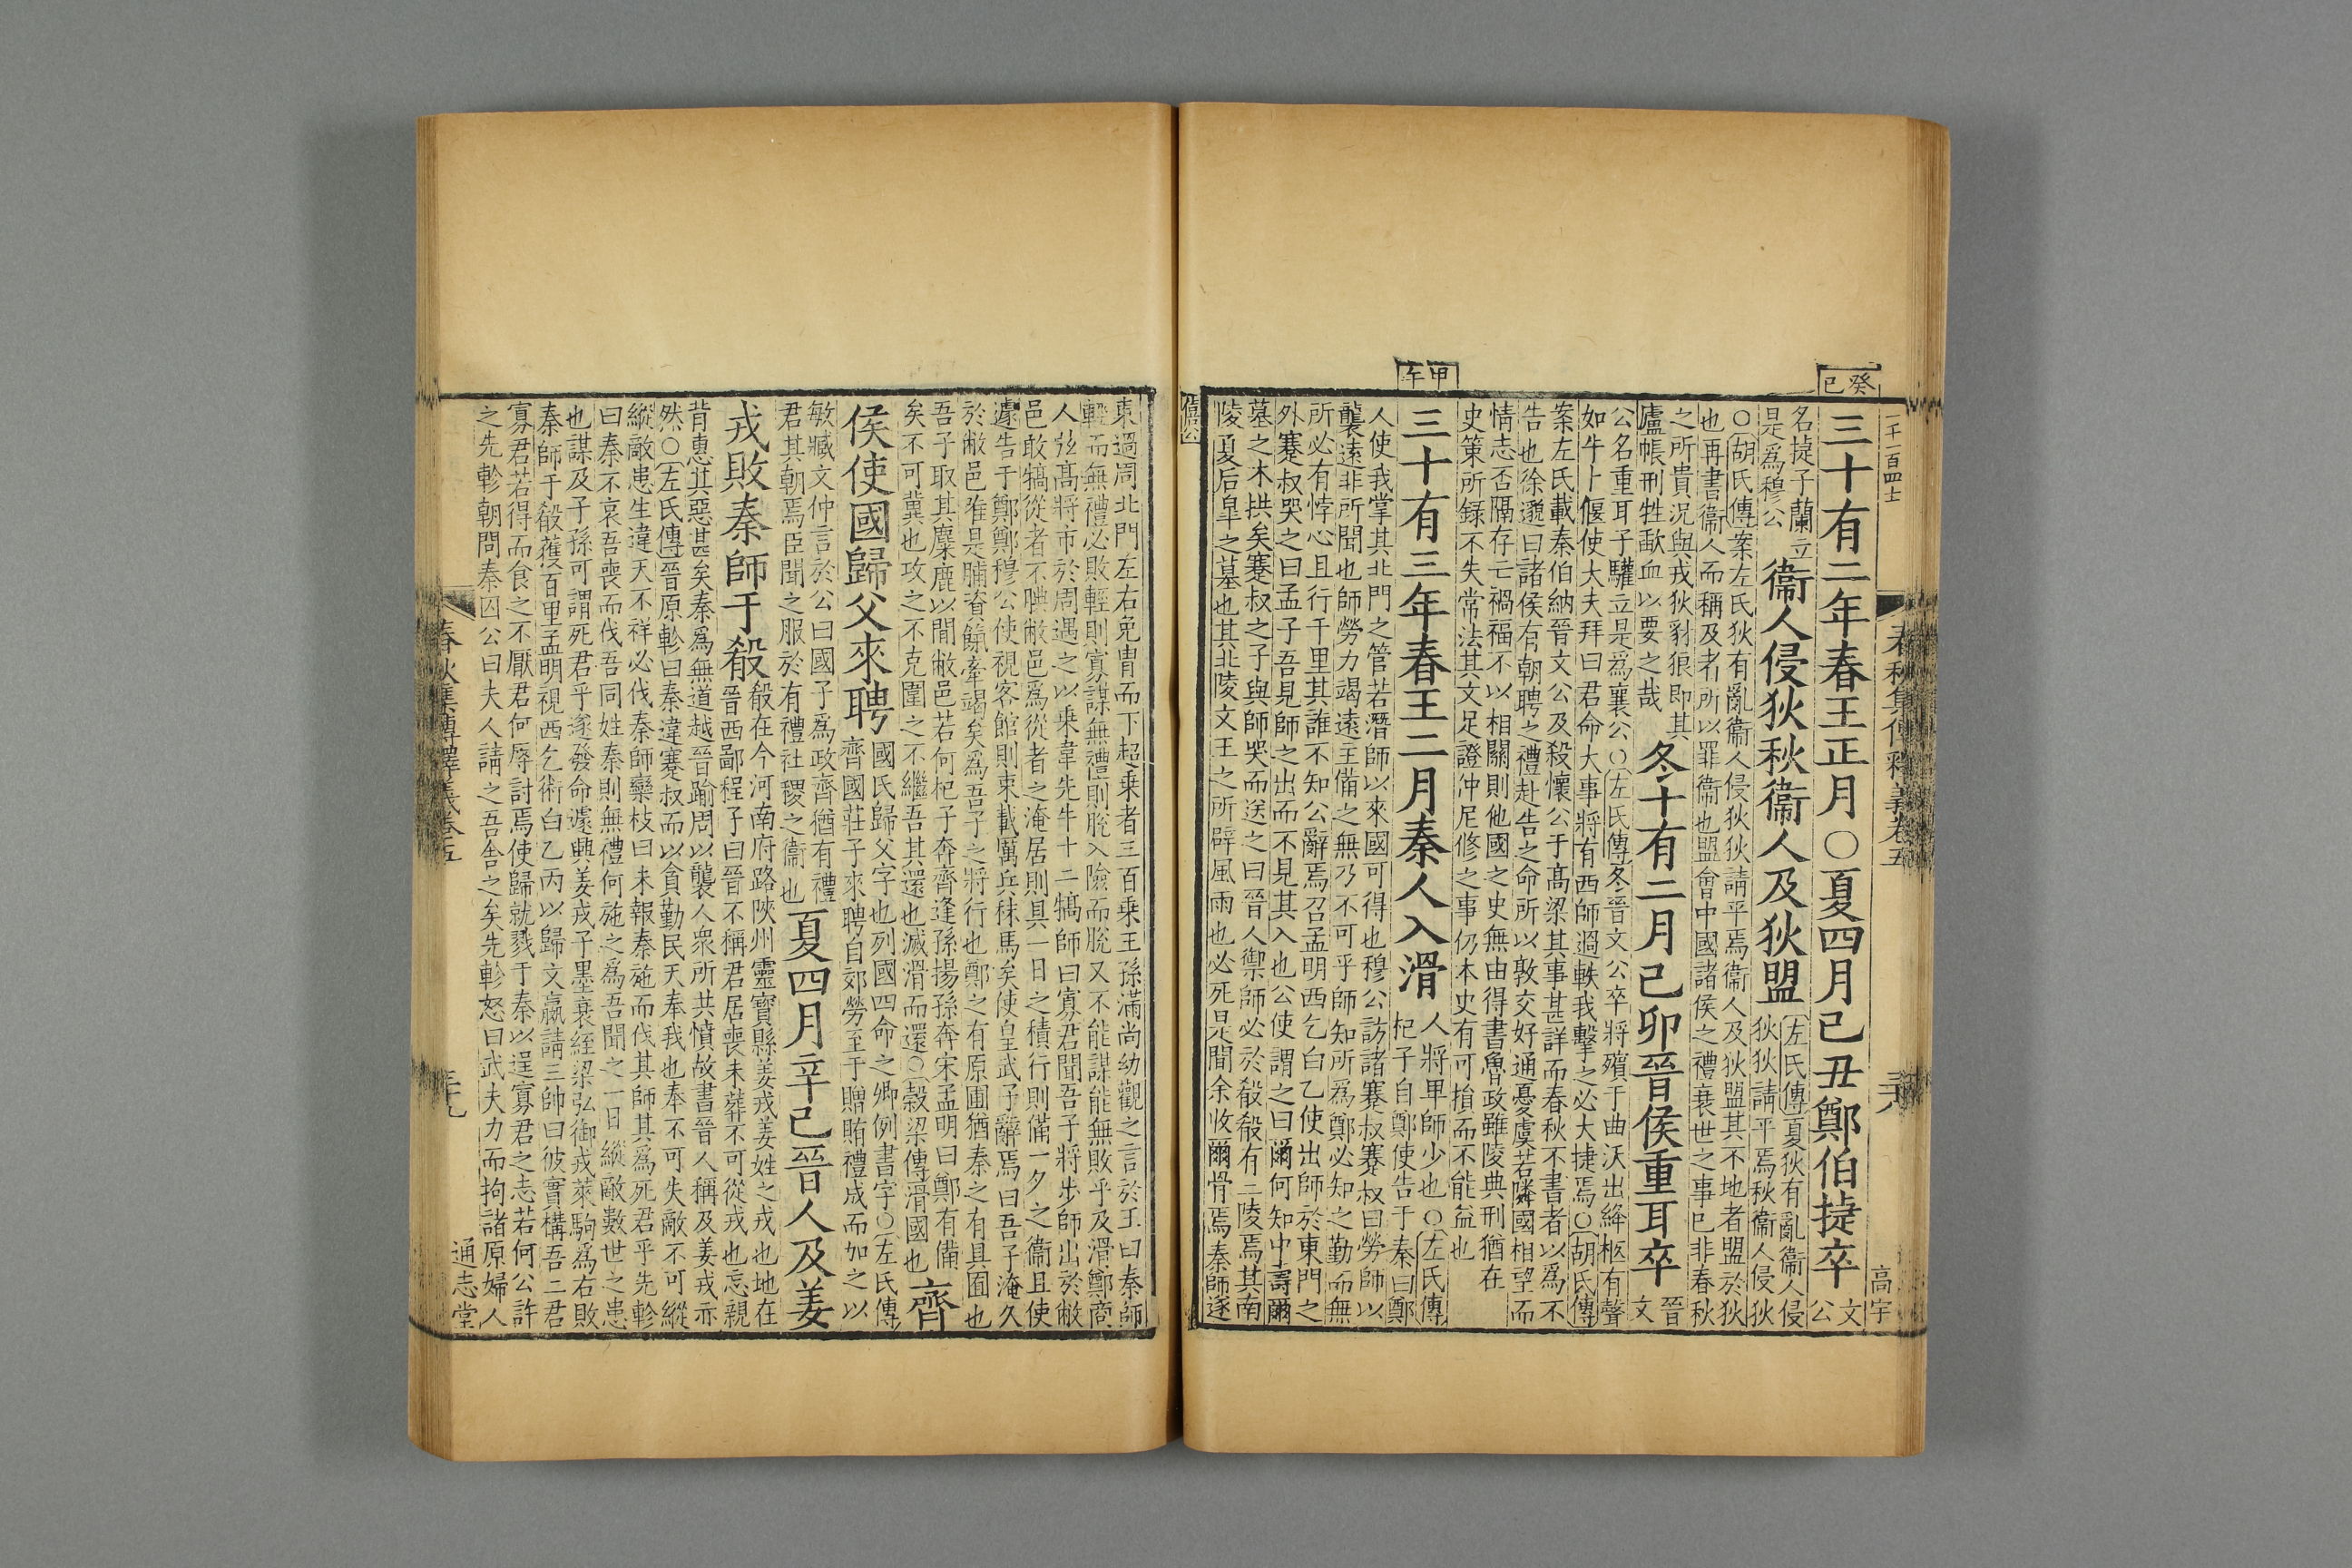 癸巳
二千一百四十
春秋集傳釋義卷五
高宇
三十有二年春王正月○夏四月己丑鄭伯捷卒文公
名捷子蘭立
是爲穆公
衞人侵狄秋衞人及狄盟
左氏傳夏狄有亂衞人侵
狄狄請平焉秋衞人侵狄
○胡氏傳案左氏狄有亂衞人侵狄狄請平焉衞人及狄盟其不地者盟於狄
也再書衞人而稱及者所以罪衞也盟會中國諸侯之禮衰世之事已非春秋
之所貴況與戎狄豺狼即其
廬帳刑牲歃血以要之哉
冬十有二月己卯晉侯重耳卒
晉文
公名重耳子驩立是爲襄公○左氏傳冬晉文公卒將殯于曲沃出絳柩有聲
如牛卜偃使大夫拜曰君命大事將有西師過軼我擊之必大捷焉○胡氏傳
案左氏載秦伯納晉文公及殺懷公于高梁其事甚詳而春秋不書者以爲不
告也徐邈曰諸侯有朝聘之禮赴告之命所以敦交好通憂虞若隣國相望而
情志否隔存亡禍福不以相關則他國之史無由得書魯政雖陵典刑猶在
史策所録不失常法其文足證仲尼修之事仍本史有可損而不能益也
甲午
三十有三年春王二月秦人入滑
人將卑師少也○左氏傳
杞子自鄭使告于秦曰鄭
人使我掌其北門之管若潛師以來國可得也穆公訪諸蹇叔蹇叔曰勞師以
襲遠非所聞也師勞力竭遠主備之無乃不可乎師知所爲鄭必知之勤而無
所必有悖心且行千里其誰不知公辭焉召孟明西乞白乙使出師於東門之
外蹇叔哭之曰孟子吾見師之出而不見其入也公使謂之曰爾何知中壽爾
墓之木拱矣蹇叔之子與師哭而送之曰晉人禦師必於殽殽有二陵焉其南
陵夏后皐之墓也其北陵文王之所辟風雨也必死是間余收爾骨焉秦師遂
僖公
東過周北門左右免胄而下超乗者三百乗王孫滿尚幼觀之言於王曰秦師
輕而無禮必敗輕則寡謀無禮則脫入險而脫又不能謀能無敗乎及滑鄭商
人弦髙將市於周遇之以乗韋先牛十二犒師曰寡君聞吾子將步師出於敝
邑敢犒從者不腆敝邑爲從者之淹居則具一日之積行則備一夕之衞且使
遽告于鄭鄭穆公使視客館則束載厲兵秣馬矣使皇武子辭焉曰吾子淹久
於敝邑唯是脯資餼牽竭矣爲吾子之將行也鄭之有原圃猶秦之有具囿也
吾子取其麋鹿以閒敝邑若何杞子奔齊逢孫揚孫奔宋孟明曰鄭有備
矣不可冀也攻之不克圍之不繼吾其還也滅滑而還○穀梁傳滑國也
齊
侯使國歸父來聘
國氏歸父字也列國四命之卿例書字○左氏傳
齊國莊子來聘自郊勞至于贈賄禮成而加之以
敏臧文仲言於公曰國子爲政齊猶有禮
君其朝焉臣聞之服於有禮社稷之衞也
夏四月辛巳晉人及姜
戎敗秦師于殽
殽在今河南府路陜州靈寶縣姜戎姜姓之戎也地在
晉西鄙程子曰晉不稱君居喪未葬不可從戎也忘親
背惠其惡甚矣秦爲無道越晉踰周以襲人衆所共憤故書晉人稱及姜戎亦
然○左氏傳晉原軫曰秦違蹇叔而以貪勤民天奉我也奉不可失敵不可縱
縱敵患生違天不祥必伐秦師欒枝曰未報秦施而伐其師其爲死君乎先軫
曰秦不哀吾喪而伐吾同姓秦則無禮何施之爲吾聞之一日縱敵數世之患
也謀及子孫可謂死君乎遂發命遽興姜戎子墨衰絰梁弘御戎萊駒爲右敗
秦師于殽獲百里孟明視西乞術白乙丙以歸文嬴請三帥曰彼實構吾二君
寡君若得而食之不厭君何辱討焉使歸就戮于秦以逞寡君之志若何公許
之先軫朝問秦囚公曰夫人請之吾舍之矣先軫怒曰武夫力而拘諸原婦人
春秋集傳釋義卷五
通志堂